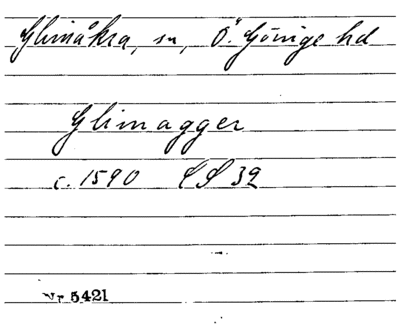 Glimåkra, sn, Ö. Göinge hd
Glimagger
c. 1590 LS 39
Nr 5421